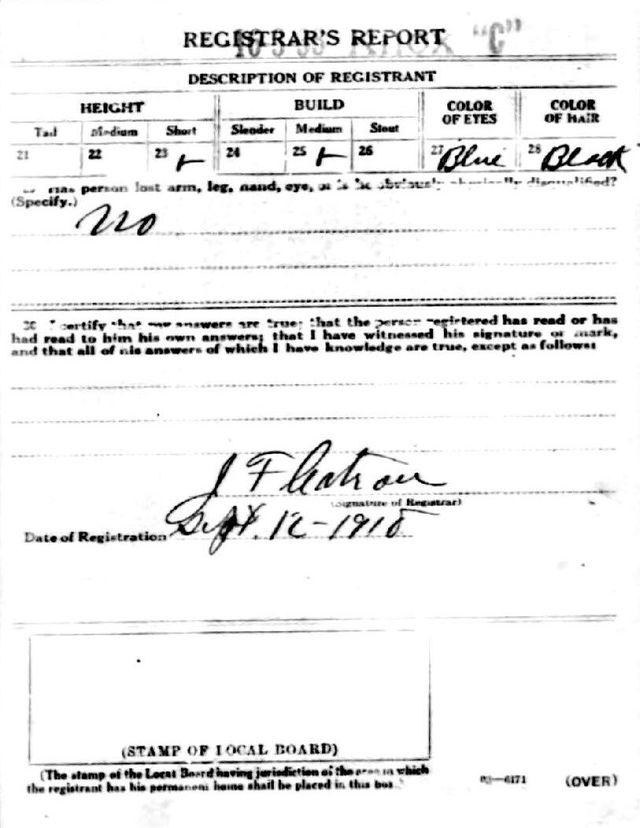 REGISTRAR'S REPORT "C"
DESCRIPTION OF REGISTRANT
HEIGHT BUILD COLOR OF EYES COLOR OF HAIR
Tall Medium Short Slender Medium Stout
21 22 23 24 25 26 27 Blue 28 Black
has person lost arm, leg, hand, eye, or is he obviously physically disqualified?
(Specify.)
No
30 I certify that my answers are true; that the person registered has read or has
had read to him his own answers; that I have witnessed his signature or mark,
and that all of his answers of which I have knowledge are true, except as follows:
J F
(Signature of Registrar)
Date of Registration Sept. 12-1918
(STAMP OF LOCAL BOARD)
(The stamp of the Local Board having jurisdiction of the area in which
the registrant has his permanent home shall be placed in this box.)
03—6171 (OVER)